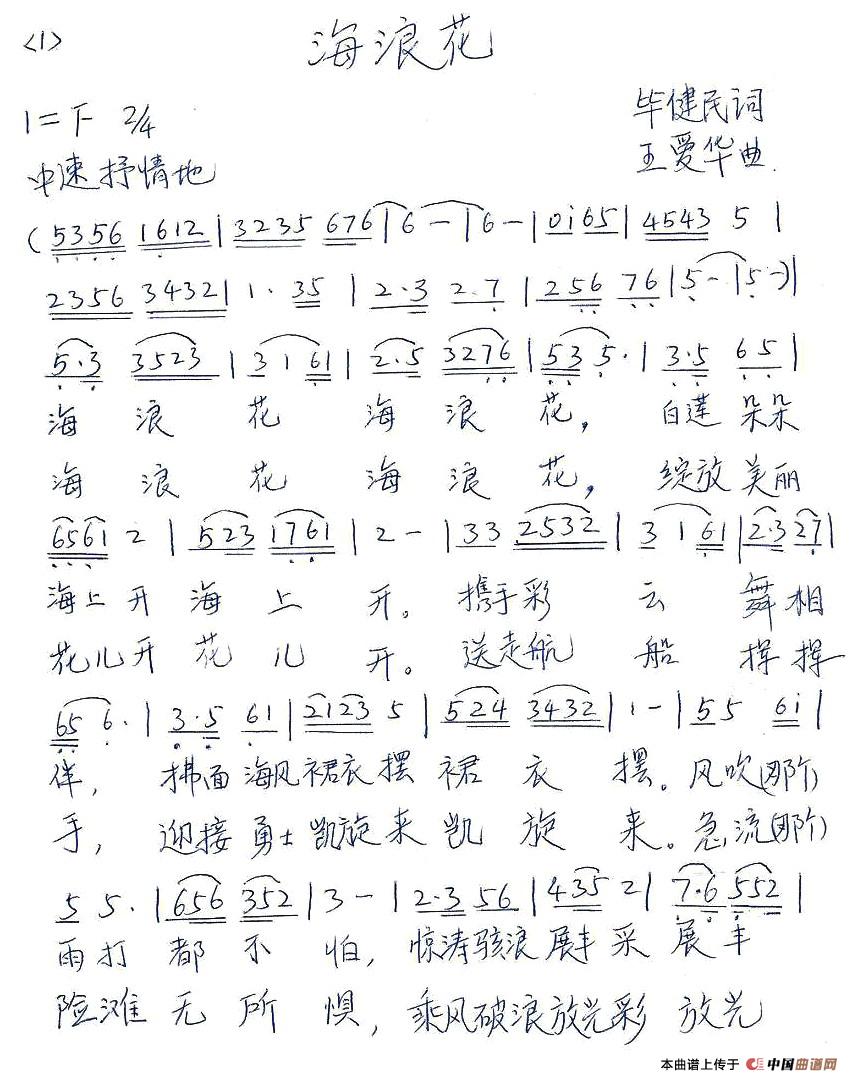 <1>
海浪花
1=F 2/4
毕健民词
中速 抒情地
王爱华曲.
(5356 1612|3235 676|6-|6-|0i65|4543 5|
2356 3432|1·35|2·3 2·7|256 76|5-|5-)|
5·3 3523|3 1 61|2·5 3276|53 5·|3·5 65|
海 浪 花 海 浪 花, 白莲 朵朵
海 浪 花 海 浪 花, 绽放 美丽
6561 2|523 1761|2-|33 2532|3 1 61|2·3 27|
海上开 海 上 开。携手彩 云 舞相
花儿开 花 儿 开。送走航 船 挥挥
65 6·|3·5 61|2123 5|524 3432|1-|55 6i|
伴, 拂面 海风裙衣摆 裙 衣 摆。风吹(那阶)
手, 迎接 勇士凯旋来 凯 旋 来。急流(那阶)
5 5·|656 352|3-|2·3 56|435 2|7·6 552|
雨打 都 不 怕, 惊涛骇浪 展丰采 展 丰
险滩 无 所 惧, 乘风破浪放光彩 放光
本曲谱上传于 中国曲谱网